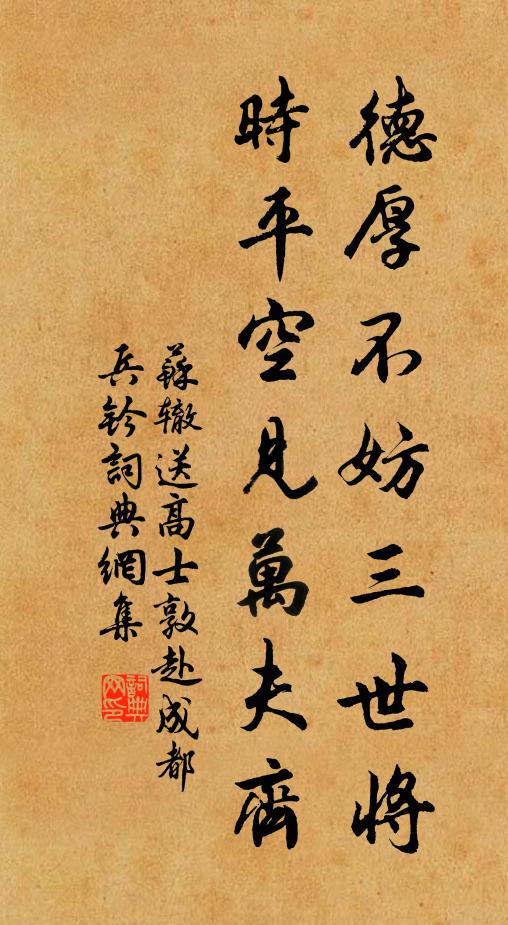 德厚不妨三世將
時平空見萬夫齊
蘇辙送高士敦赴成都
兵鈐詞典網集
詞典網印